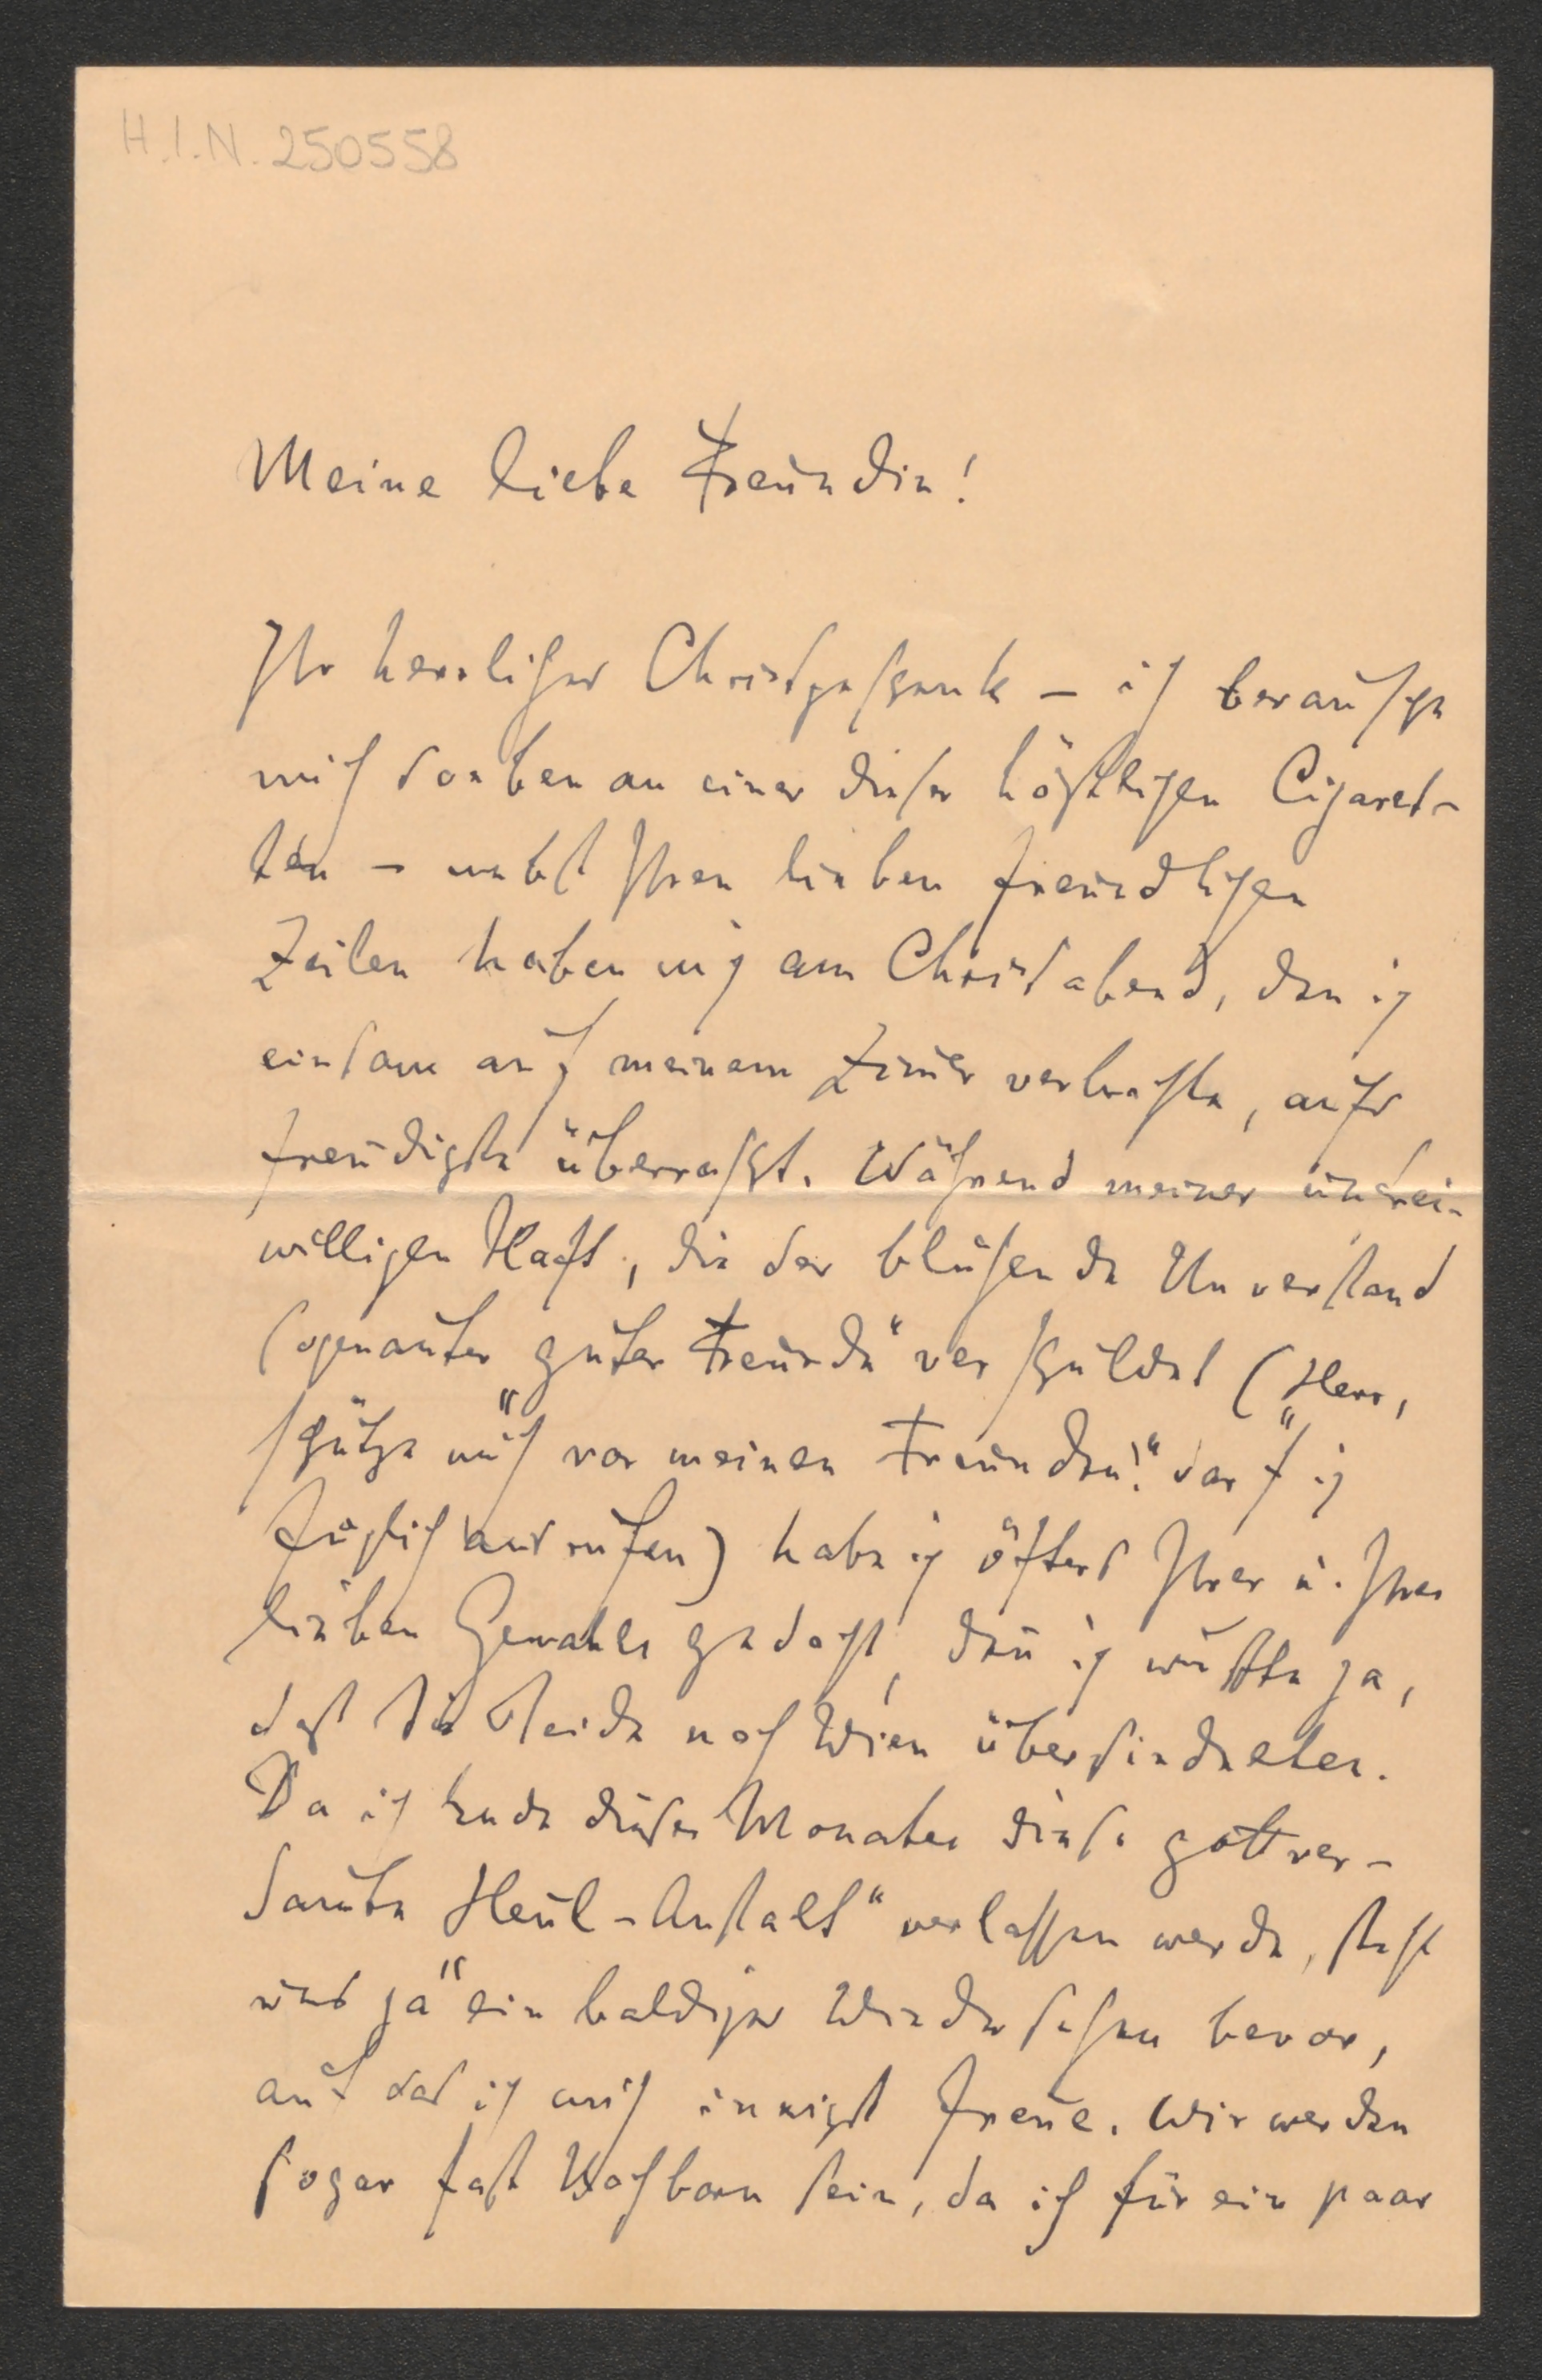 H.I.N. 250558
Meine liebe Freundin!
Ihr herrliches Christgeschenk – ich berausche
mich soeben an einer dieser köstlichen Cigaret-
ten – nebst Ihren lieben freundlichen
Zeilen haben mich am Christabend, den ich
einsam auf meinem Zim̄er verbrachte, aufs
freudigste überrascht. Während meiner unfrei-
willigen Haft, die der blühende Unverstand
sogenan̄ter „guter Freunde“ verschuldet („Herr,
schütze mich vor meinen Freunden!“ darf ich
füglich ausrufen) habe ich öfters Ihrer u. Ihres
lieben Gemahls gedacht, den̄ ich wußte ja,
daß Sie Beide nach Wien übersiedelten.
Da ich Ende dieses Monates diese gottver-
dam̄te „Heul-Anstalt“ verlassen werde, steht
uns ja ein baldiges Wiedersehen bevor,
auf das ich mich innigst freue. Wir werden
sogar fast Nachbarn sein, da ich für ein paar